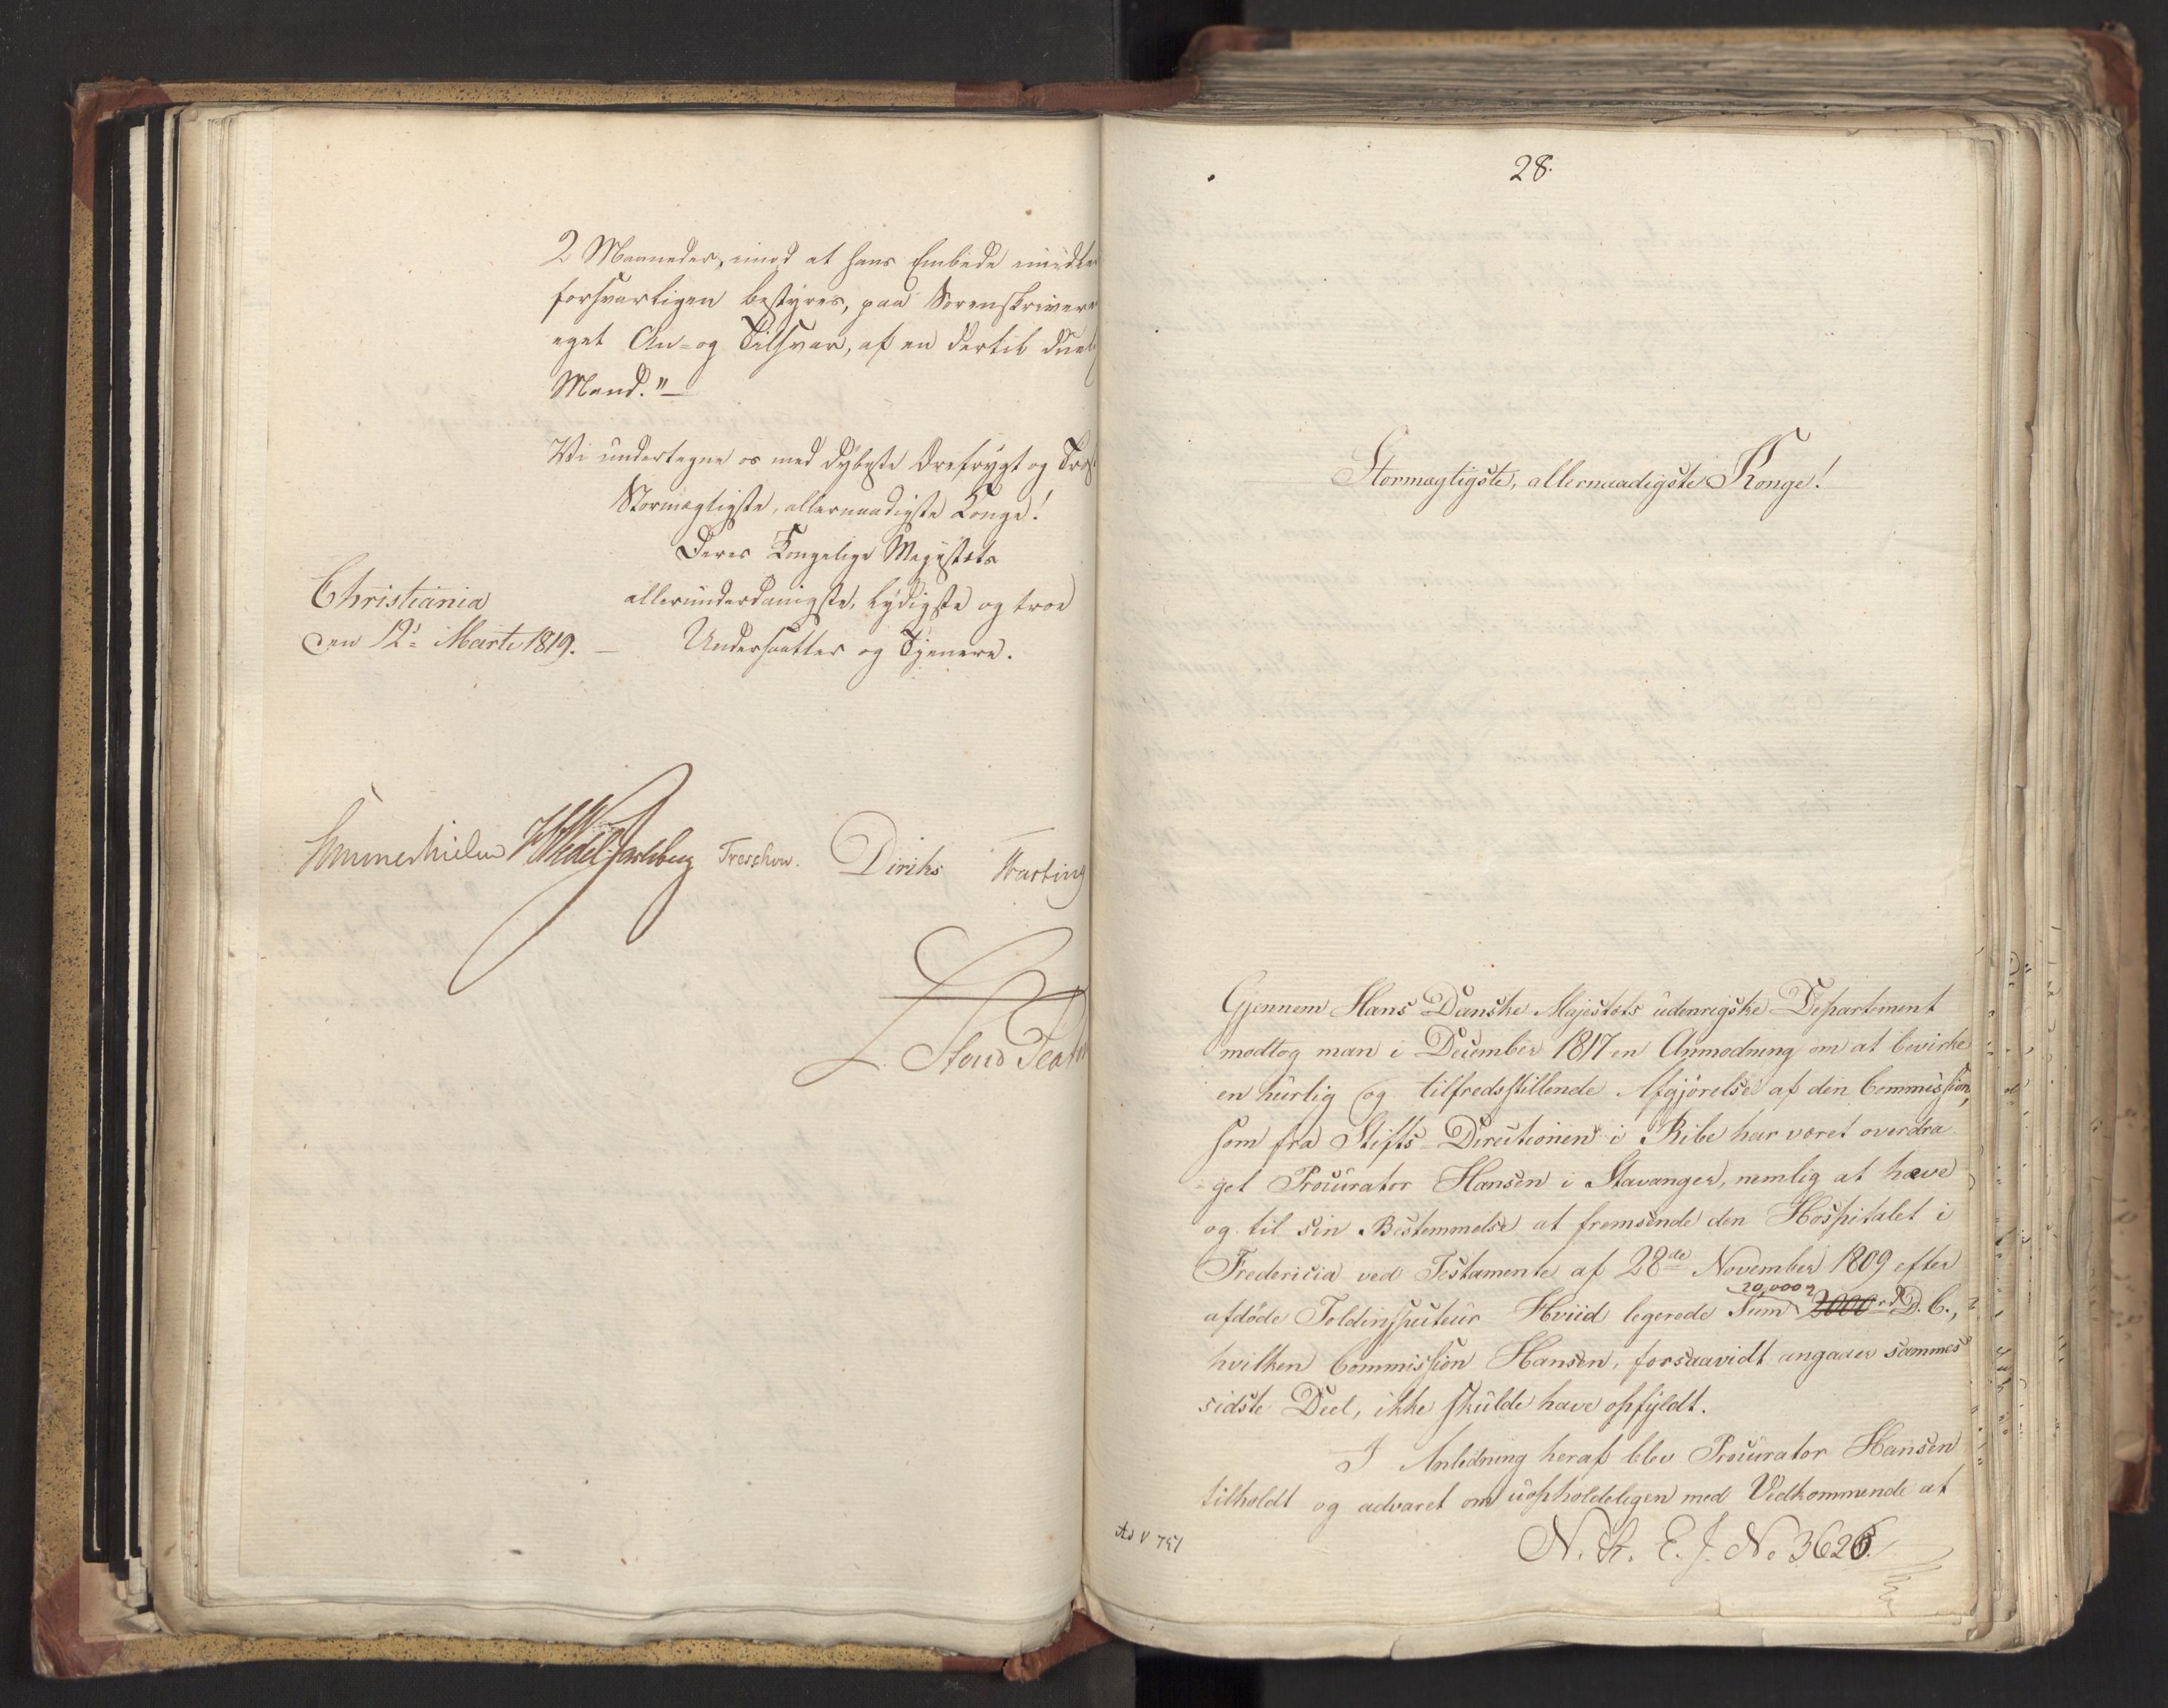 2 Maaneder, imod at hans Embede imidler
forsvarligen bestyres, paa Sorenskriverens
eget An- og Tilsvar, af en dertil duelig
Mand."—
Vi undertegne os med dybeste Ærefrygt og Troskab
Stormægtigste, allernaadigste Konge!
Deres Kongelige Majestæts
Christiania
allerunderdanigste, lydigste og troe
den 12te Marti 1819. —
Undersaatter og Tjenere.
Sommerhielm HWedel Jarlsberg Treschow. Diriks Fasting
Stoud Platou
28.
Stormægtigste, allernaadigste Konge!
Gjennem Hans Danske Majestæts udenrigske Departement
modtog man i December 1817 en Anmodning om at bevirke
en hurtig og tilfredsstillende Afgjørelse af den Commission,
som fra Stifts-Directionen i Ribe har været overdra-
get Procurator Hansen i Stavanger, nemlig at hæve
og til sin Bestemmelse at fremsende den Hospitalet i
Fredericia ved Testamente af 28de November 1809 efter
20,000
afdøde Toldinspecteur Hviid legerede Sum 2000 rd D. C.,
hvilken Commission Hansen, forsaavidt angaaer sammes
sidste Deel, ikke skulde have opfyldt.
I Anledning heraf blev Procurator Hansen
tilholdt og advaret om uopholdeligen med Vedkommende at
Ad V 751
N. R. E. J. No 3626.